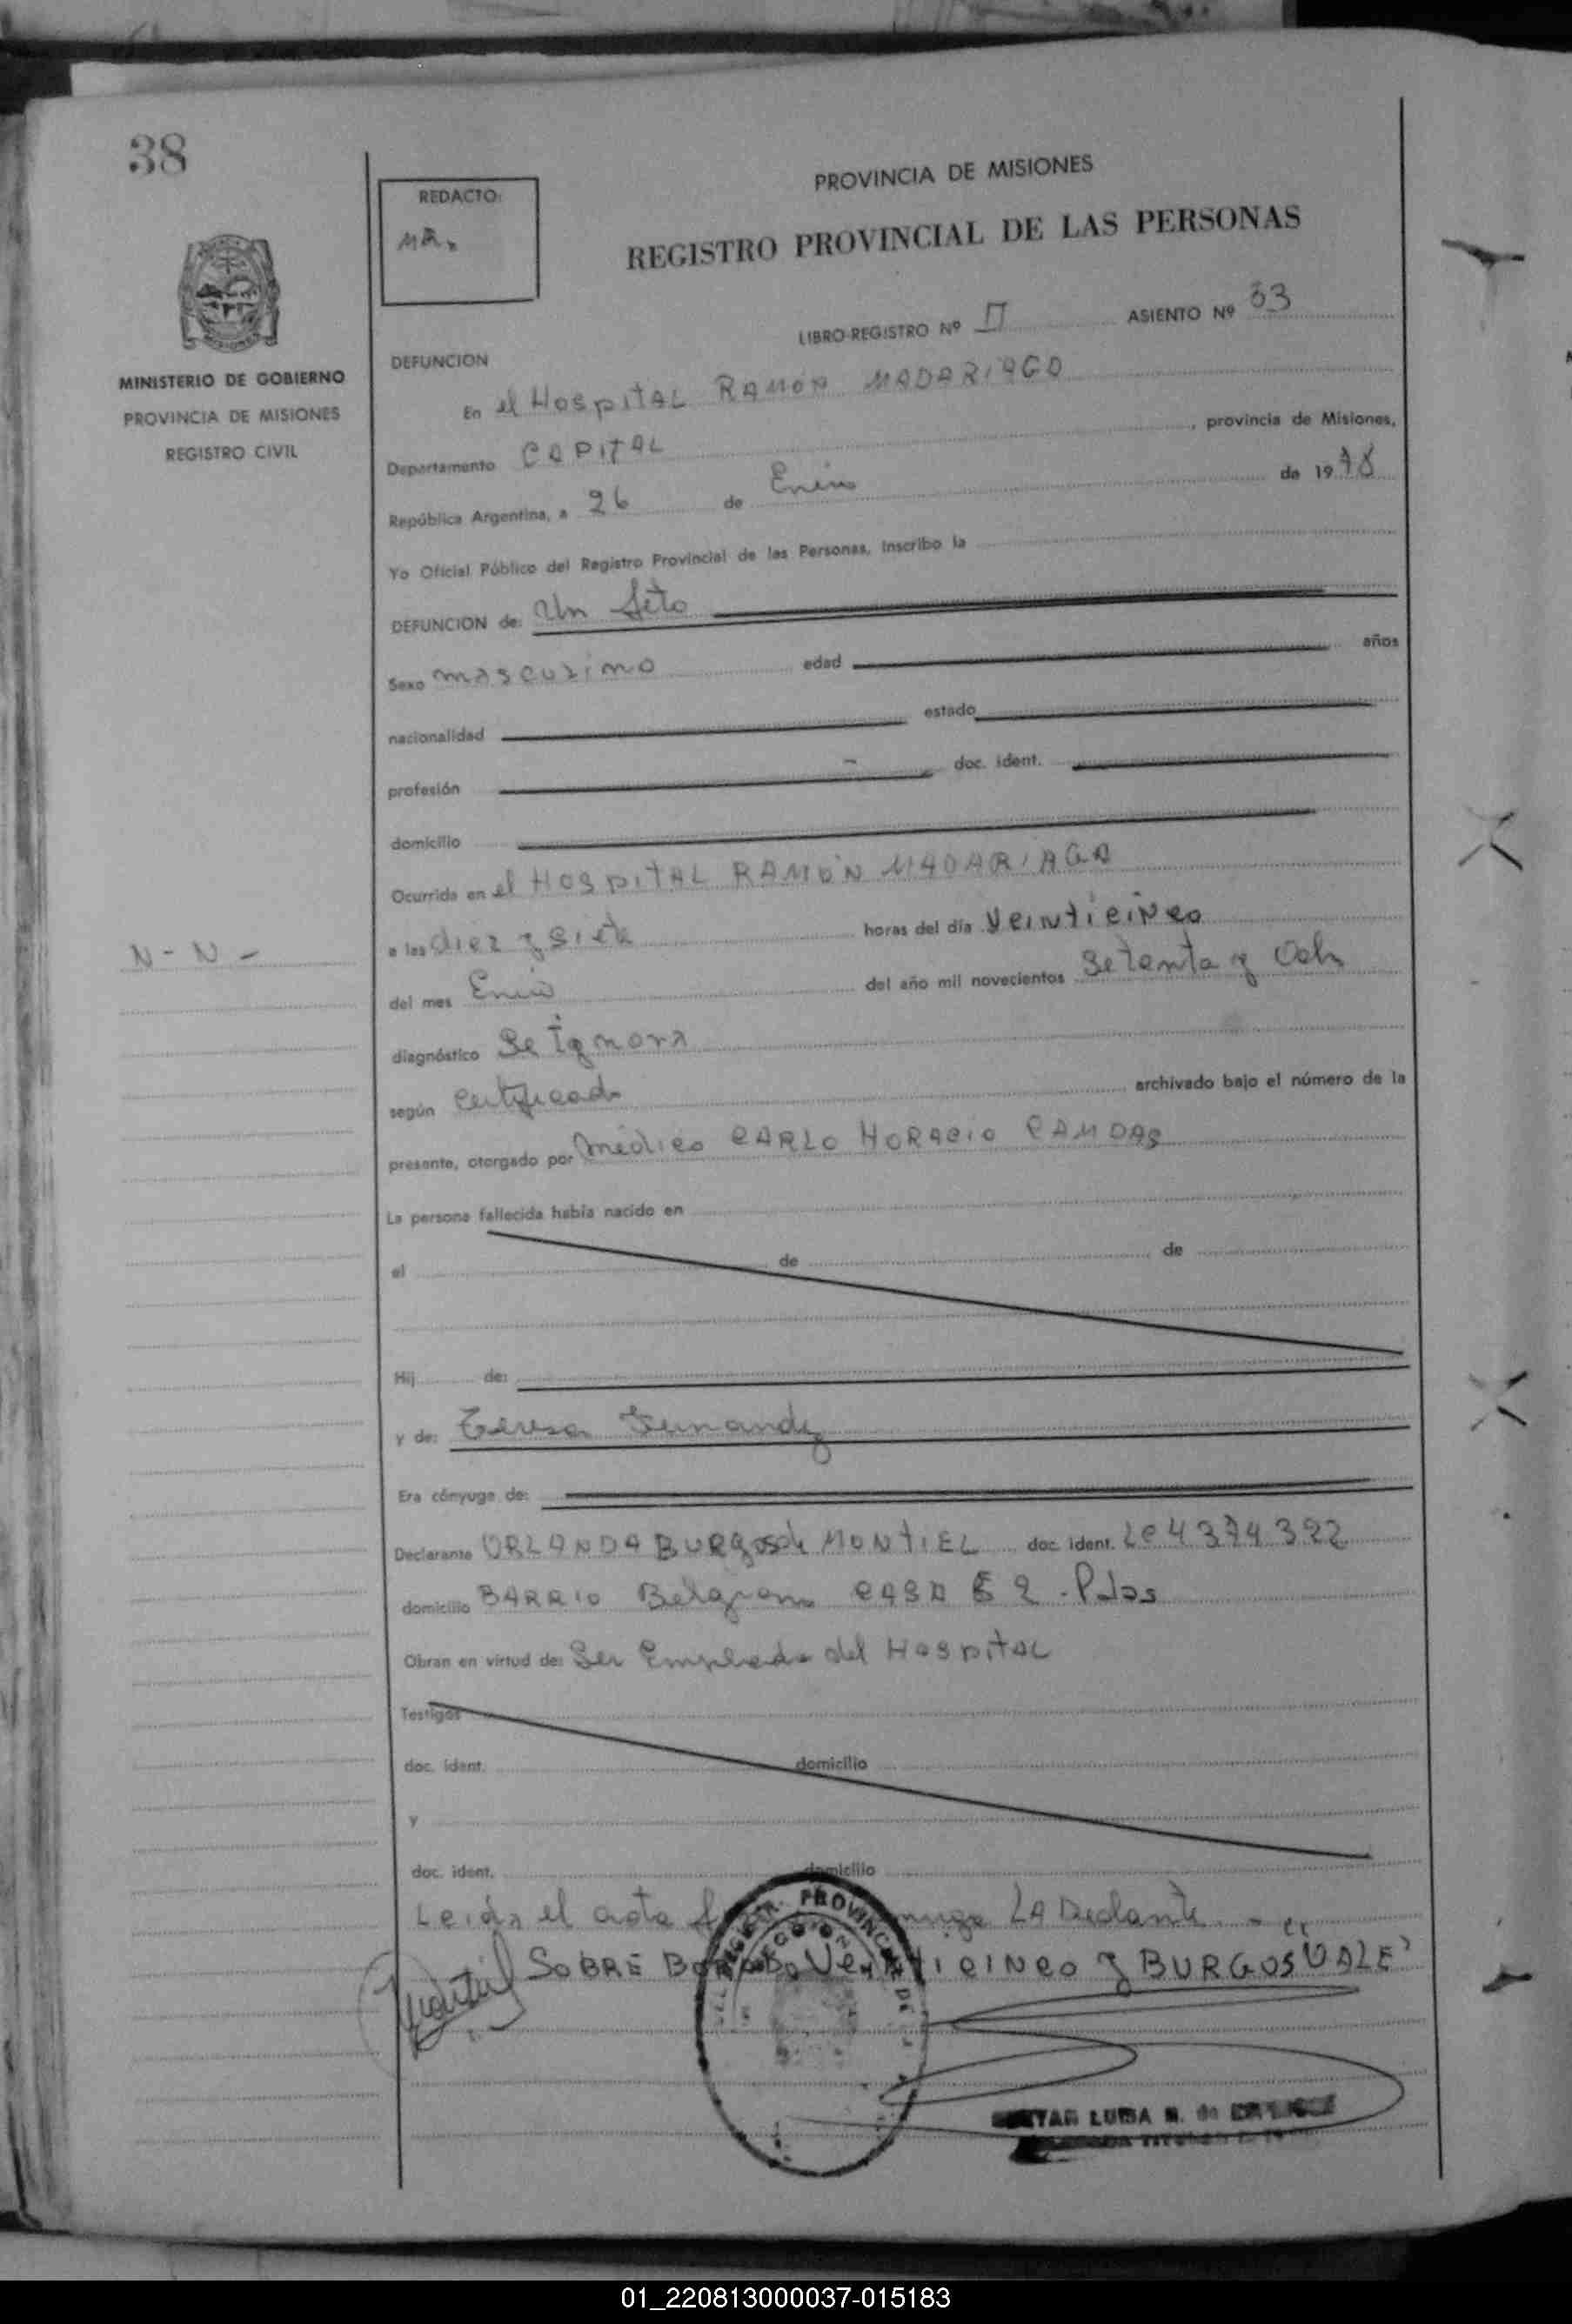 38
REDACTO:
MR.
PROVINCIA DE MISIONES
REGISTRO PROVINCIAL DE LAS PERSONAS
MINISTERIO DE GOBIERNO
PROVINCIA DE MISIONES
REGISTRO CIVIL
LIBRO-REGISTRO Nº II ASIENTO Nº 33
DEFUNCION
En el HOSPITAL RAMON MADARIAGA
Departamento CAPITAL , provincia de Misiones,
República Argentina, a 26 de Enero de 1978
Yo Oficial Público del Registro Provincial de las Personas, inscribo la
DEFUNCION de: Un feto
Sexo masculino edad años
nacionalidad estado
profesión doc. ident.
domicilio
Ocurrida en el HOSPITAL RAMON MADARIAGA
a las diez y siete horas del día Veinticinco
N - N -
del mes Enero del año mil novecientos Setenta y Ocho
diagnóstico Se Ignora
según Certificado archivado bajo el número de la
presente, otorgado por Médico CARLO HORACIO
La persona fallecida había nacido en
el de de
Hij de:
y de: Teresa Fernandez
Era cónyuge de:
Declarante ORLANDA BURgos de MONTIEL doc. ident. LC 4374322
domicilio BARRIO Belgrano CASA 52 - Pdas
Obran en virtud de: Ser Empleada del HOSPITAL
Testigos
doc. ident. domicilio
y
doc. ident. domicilio
Leida el acta LA
SOBRE Veinticinco y BURGOS "VALE"
LUISA
01_220813000037-015183